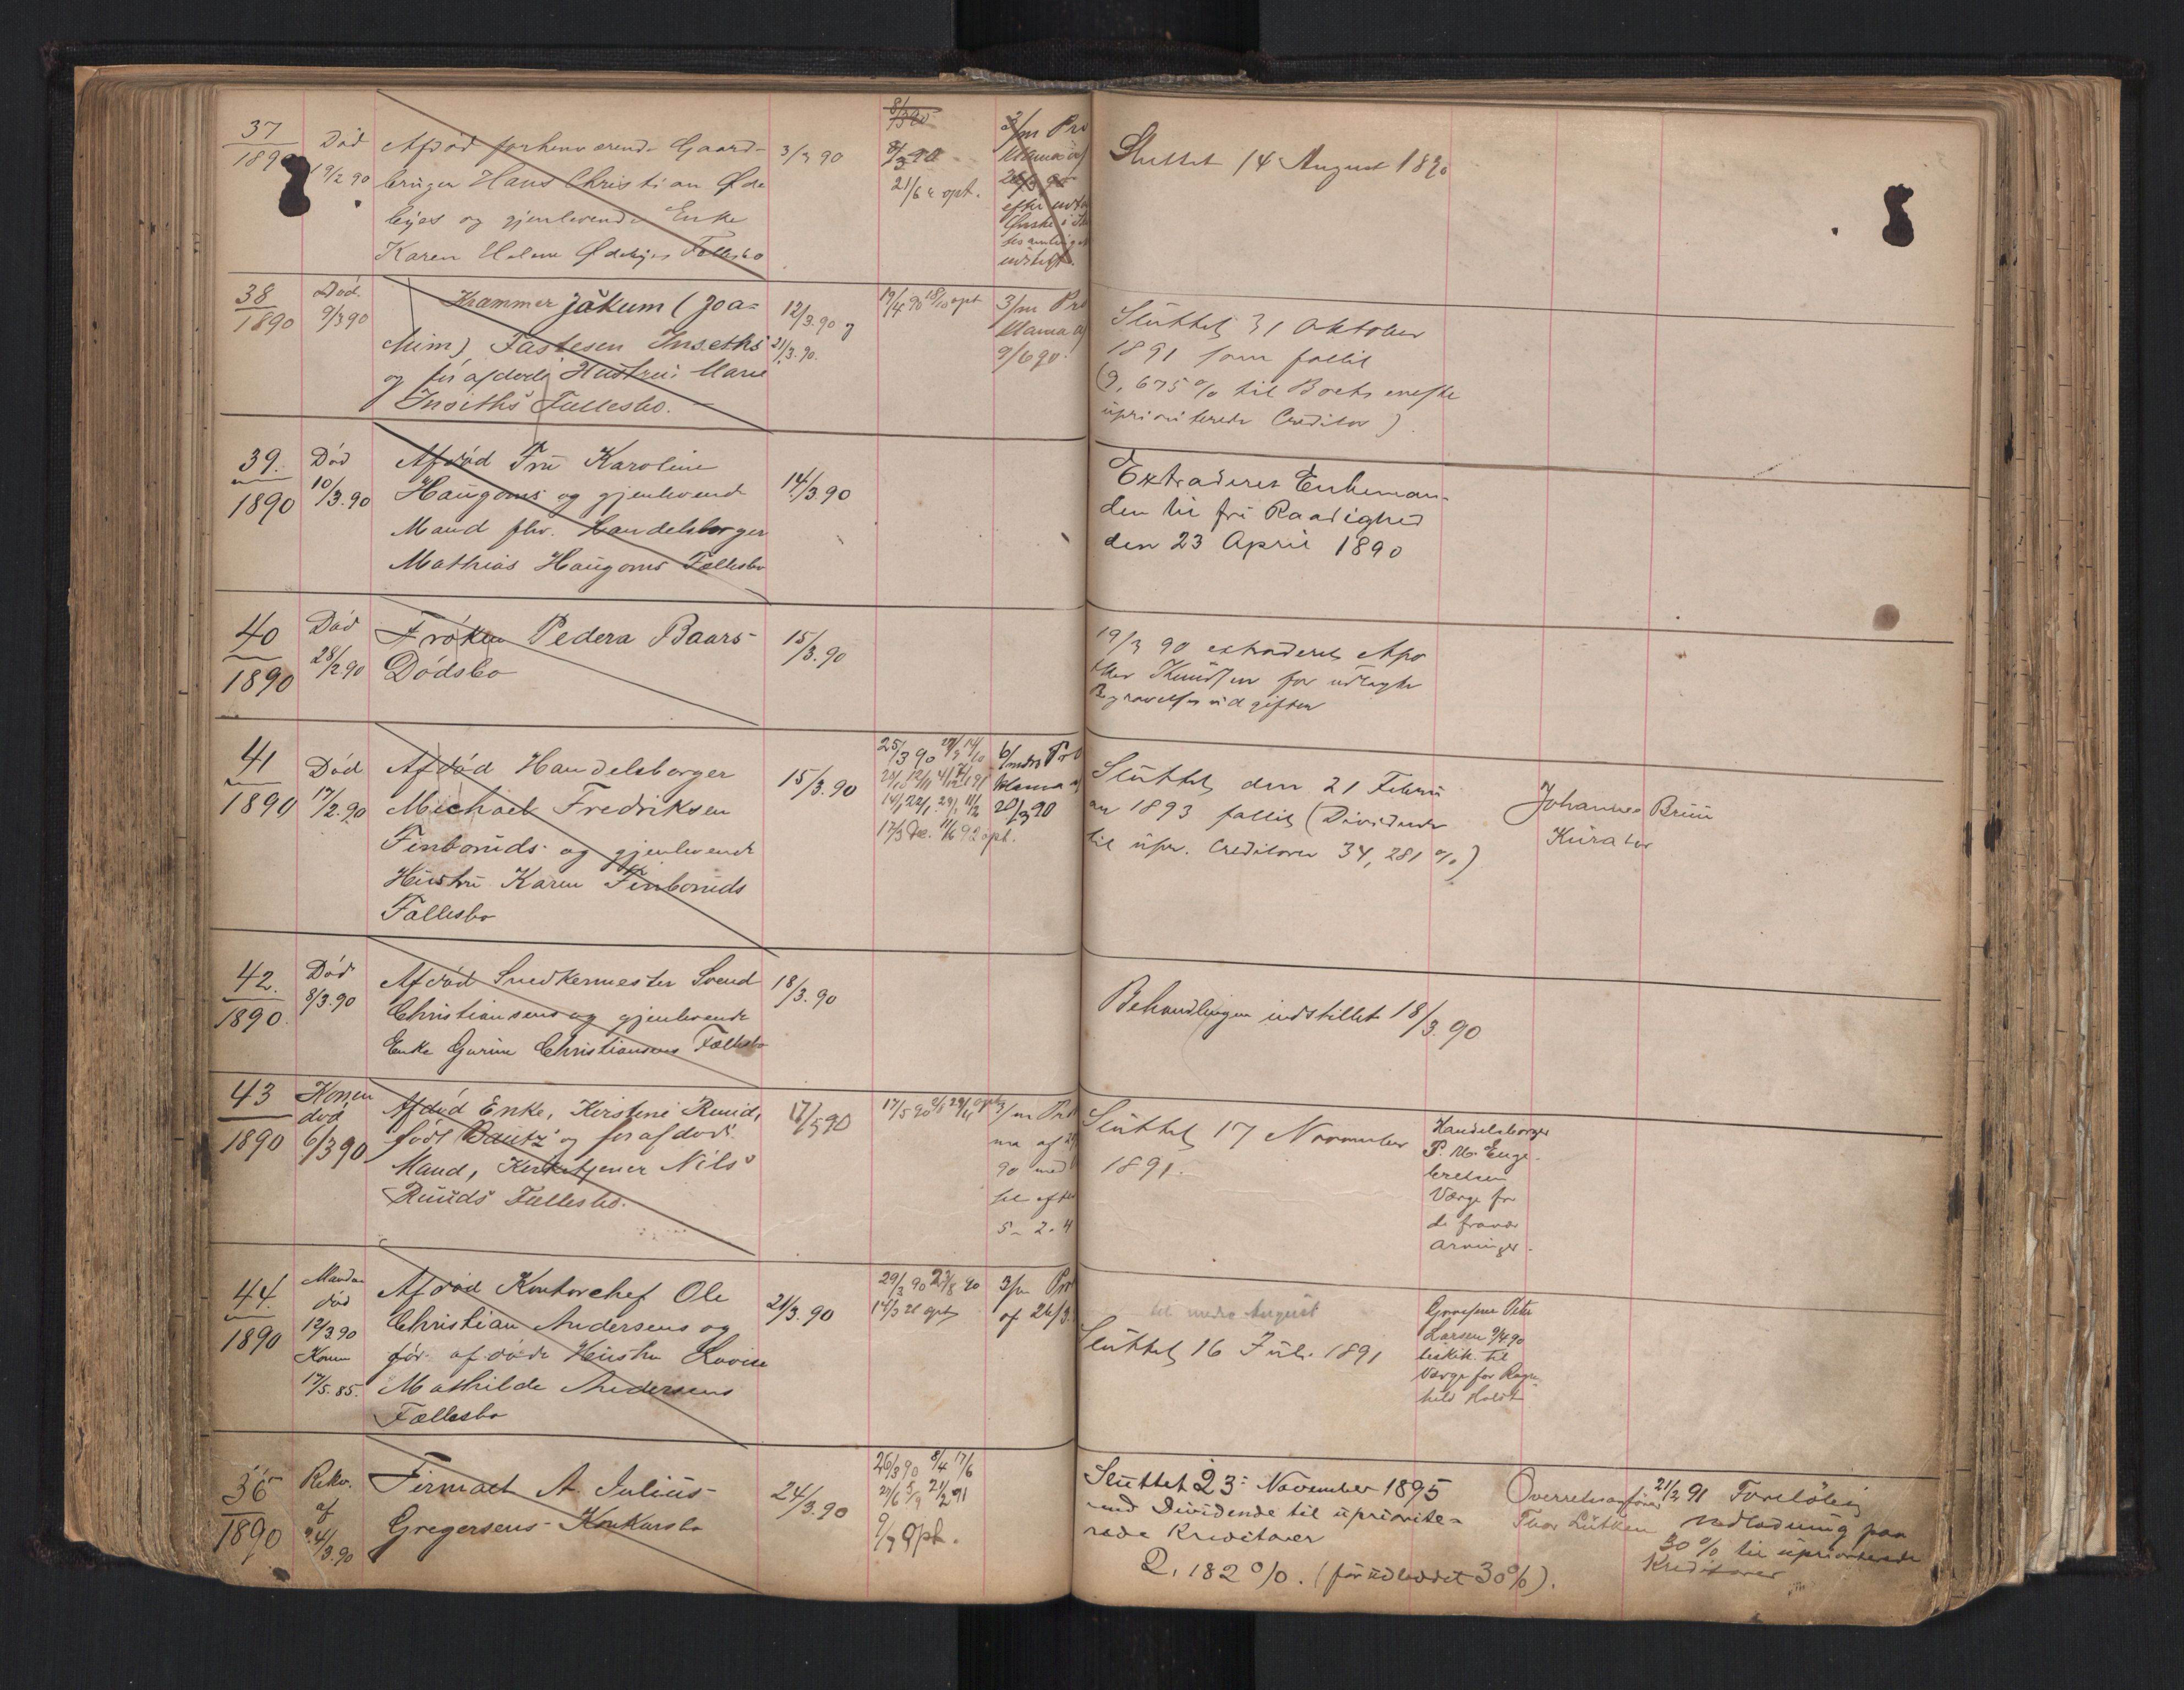 37
1890
Död
19/2 90
Afdöd forhenværende Gaard-
bruger Hans Christian Øde
byes og gjenlevende Enke
Karen Helene Ødebyes Fællesbo
3/3 90
8/3 90
21/6 opt.
3/m Pro
klama af
Sluttet 14 August 1890
38
1890
Död
9/3 90
Krammer Jåkum (Joa-
chim) Tastesen Inseths
og för afdöde Hustru Marie
Inseths Fællesbo.
12/3.90 og
21/3.90.
19/4 90 18/10 opt
3/m Pro
klama af
9/6 90.
Sluttet 31 Oktober
1891 som fallit
(9,675 % til Boets eneste
upriorterede Creditor)
39.
1890
Död
10/3.90
Afdöd Fru Karoline
Haugoms og gjenlevende
Mand fhv. Handelsborger
Mathias Haugoms Fællesbo
14/3.90
Extraderet Enkeman-
den til fri Raadighed
den 23 April 1890
40
1890
Död
28/2 90
Fröken Pedera Baars
Dödsbo
15/3.90
19/3 90 extraderet Apo
theker Knudsen for udlagte
Begravelsesudgifter
41
1890
Död
17/2.90
Afdöd Handelsborger
Michael Fredriksen
Finboruds og gjenlevende
Hustru Karen Finboruds
Fallesbo
15/3.90
25/3 90
6/mdrs Pro
klama af
20/3 90
Sluttet den 21 Febru
ar 1893 fallit (Dividende
til upr. Creditorer 34,281 %)
Johannes Bruu
Kurator
42.
1890.
Död
8/3.90
Afdöd Snedkermester Svend
Christiansens og gjenlevende
Enke Gurine Christiansens Fællesbo
18/3.90
Behandlingen indstillet 18/3.90
43
1890
Konen
död
6/3 90
Afdöd Enke, Kirstine Ruud,
födt Bautz og för afdöde
Mand, Kirketjener Nils
Ruuds Fællesbo.
17/5 90
17/5 90
3/m Pro
ma af
90 med
5 - 2 - 4
Sluttet 17 November
1891.
Handelsborger
P. M. Enge-
bretsen
Værge for
de fravær
Arvinger.
44.
1890
Manden
död
12/3.90
Konen
17/5.85.
Afdöd Kontorchef Ole
Christian Andersens og
för afdöde Hustru Lovise
Mathilde Andersens
Fællesbo
21/3.90
29/3 90 23/8 90
3/m Pro
af 26/3.
til medio August
Sluttet 16 Juli 1891
Grosserer Peter
Larsen 9/4 90
beskik. til
Værge for Ragn-
hild Holst
36
1890
Rekv.
af
24/3.90
Firmaet A. Julius
Gregersens Konkursbo
24/3.90
26/3 90 8/4 17/6
9/3 Opt.
Sluttet 23 November 1895
med Dividende til upriorite-
rede Kreditorer
2,182 %. (før udloddet 30 %).
Overretssagförer
Thor Lütken
21/2 91 Foreløbig
udlodning paa
30 % til upriorterede
Kreditorer